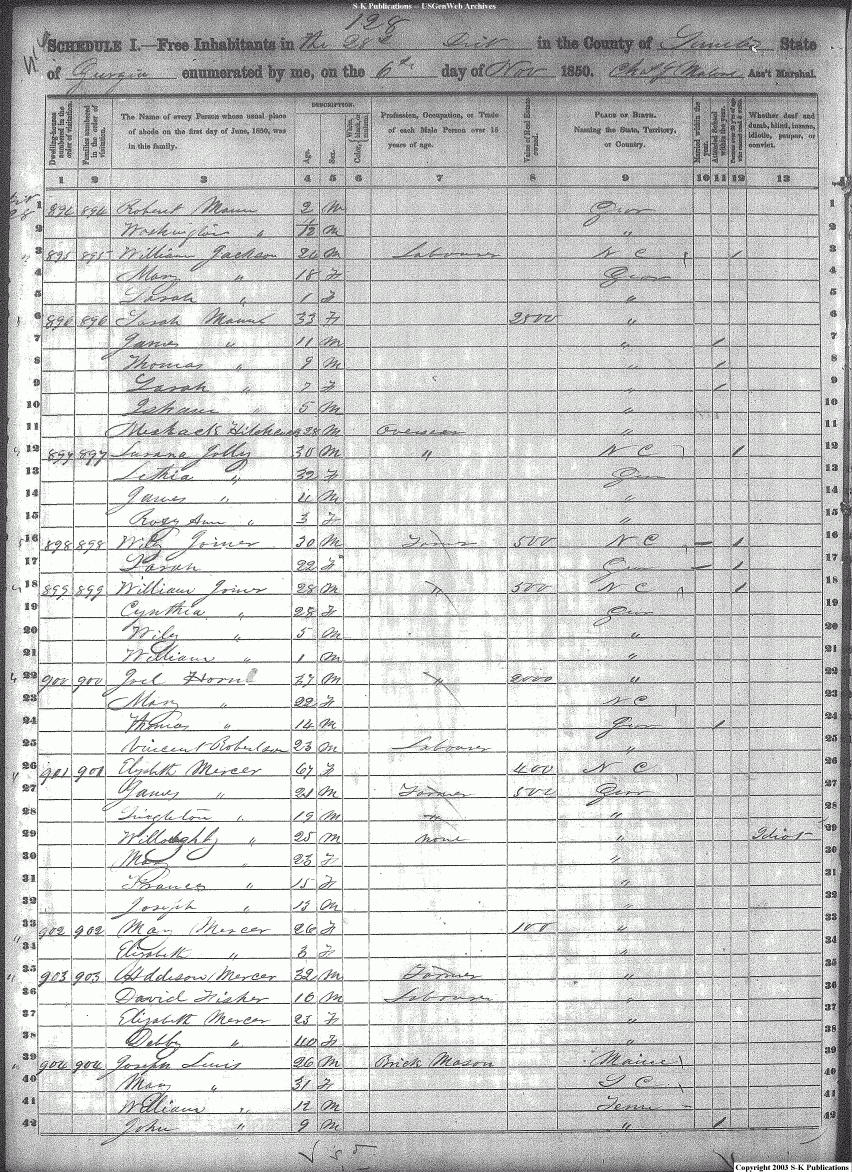 S-K Publications -- USGenWeb Archives
128
SCHEDULE I.—Free Inhabitants in The 28th Dist in the County of Sumter State
of Georgia enumerated by me, on the 6th day of Nov 1850. Chas J Malone Ass't Marshal.
Dwelling-houses numbered in the order of visitation.
Families numbered in the order of visitation.
The Name of every Person whose usual place of abode on the first day of June, 1850, was in this family.
DESCRIPTION.
Age.
Sex.
Color, White, black, or mulatto.
Profession, Occupation, or Trade of each Male Person over 15 years of age.
Value of Real Estate owned.
PLACE OF BIRTH. Naming the State, Territory, or Country.
Married within the year.
Attended School within the year.
Persons over 20 y'rs of age who cannot read & write.
Whether deaf and dumb, blind, insane, idiotic, pauper, or convict.
1 2 3 4 5 6 7 8 9 10 11 12 13
1 894 894 Robert Mann 2 M Geor 1
2 Washington " 1/12 M " 2
3 895 895 William Jackson 26 M Labourer N C / 3
4 Mary " 18 F Geor 4
5 Sarah " 1 F " 5
6 896 896 Sarah 33 F 2500 " 6
7 James " 11 M " / 7
8 Thomas " 9 M " / 8
9 Sarah " 7 F " / 9
10 Isham " 5 M " 10
11 28 M Overseer " 11
12 897 897 Jolly 30 M " N C / 12
13 Lethia " 32 F Geor 13
14 James " 4 M " 14
15 Roxy Ann " 3 F " 15
16 898 898 Wily Joiner 30 M Farmer 500 N C — / 16
17 Sarah 22 F " Geor — / 17
18 899 899 William Joiner 28 M " 500 N C / 18
19 Cynthia " 28 F Geor 19
20 Wily " 5 M " 20
21 William " 1 M " 21
22 900 900 Joel Horn 37 M " 2000 " 22
23 Mary " 22 F N C 23
24 Thomas " 14 M Geor / 24
25 Vincent Robertson 23 M Labourer " 25
26 901 901 Elizabeth Mercer 67 F 400 N C 26
27 James " 21 M Farmer 500 Geor 27
28 Singleton " 19 M " " 28
29 Willoughby " 25 M none " Idiot 29
30 Mary " 23 F " 30
31 Frances " 15 F " 31
32 Joseph " 13 M " 32
33 902 902 Mary Mercer 26 F 100 " 33
34 Elizabeth " 3 F " 34
35 903 903 Addison Mercer 32 M Farmer " 35
36 David Fisher 16 M Labourer " 36
37 Elizabeth Mercer 23 F " 37
38 Debby " 40 F " 38
39 904 904 Joseph Lewis 26 M Brick Mason Maine 39
40 Mary " 31 F S C 40
41 William " 12 M Tenn 41
42 John " 9 M " / 42
Copyright 2003 S-K Publications